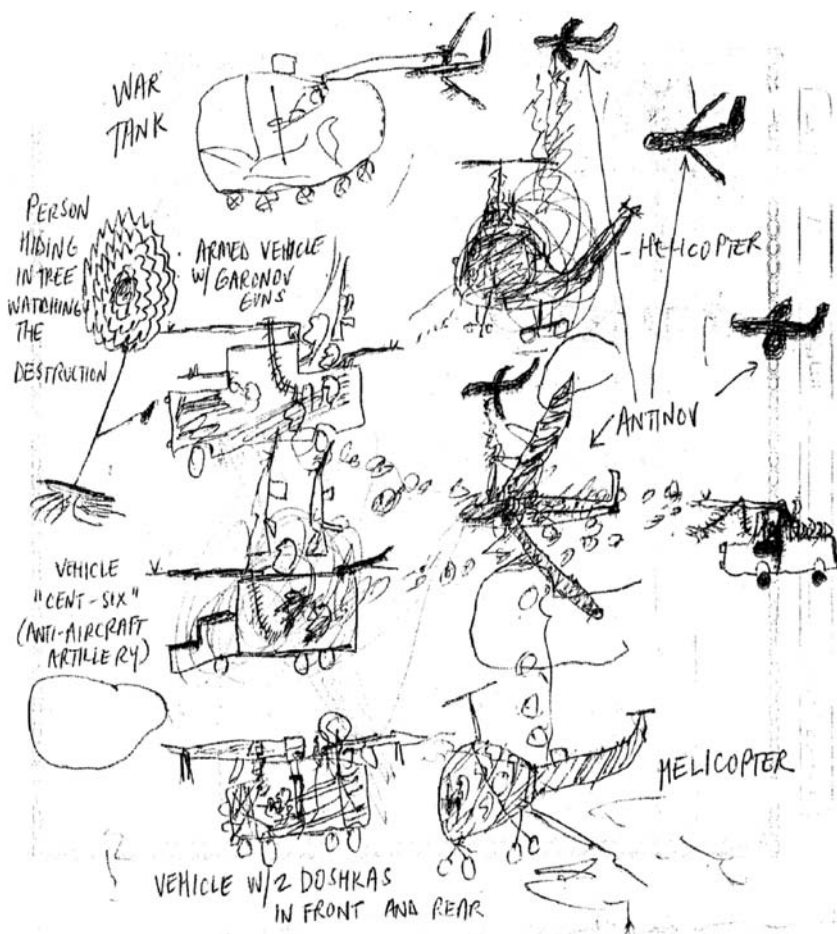 WAR
TANK
PERSON
HIDING
IN TREE
WATCHING
THE
DESTRUCTION
ARMED VEHICLE
W/ GARONOV
GUNS
-HELICOPTER
ANTINOV
VEHICLE
"CENT-SIX"
(ANTI-AIRCRAFT
ARTILLERY)
HELICOPTER
VEHICLE W/2 DOSHKAS
IN FRONT AND REAR